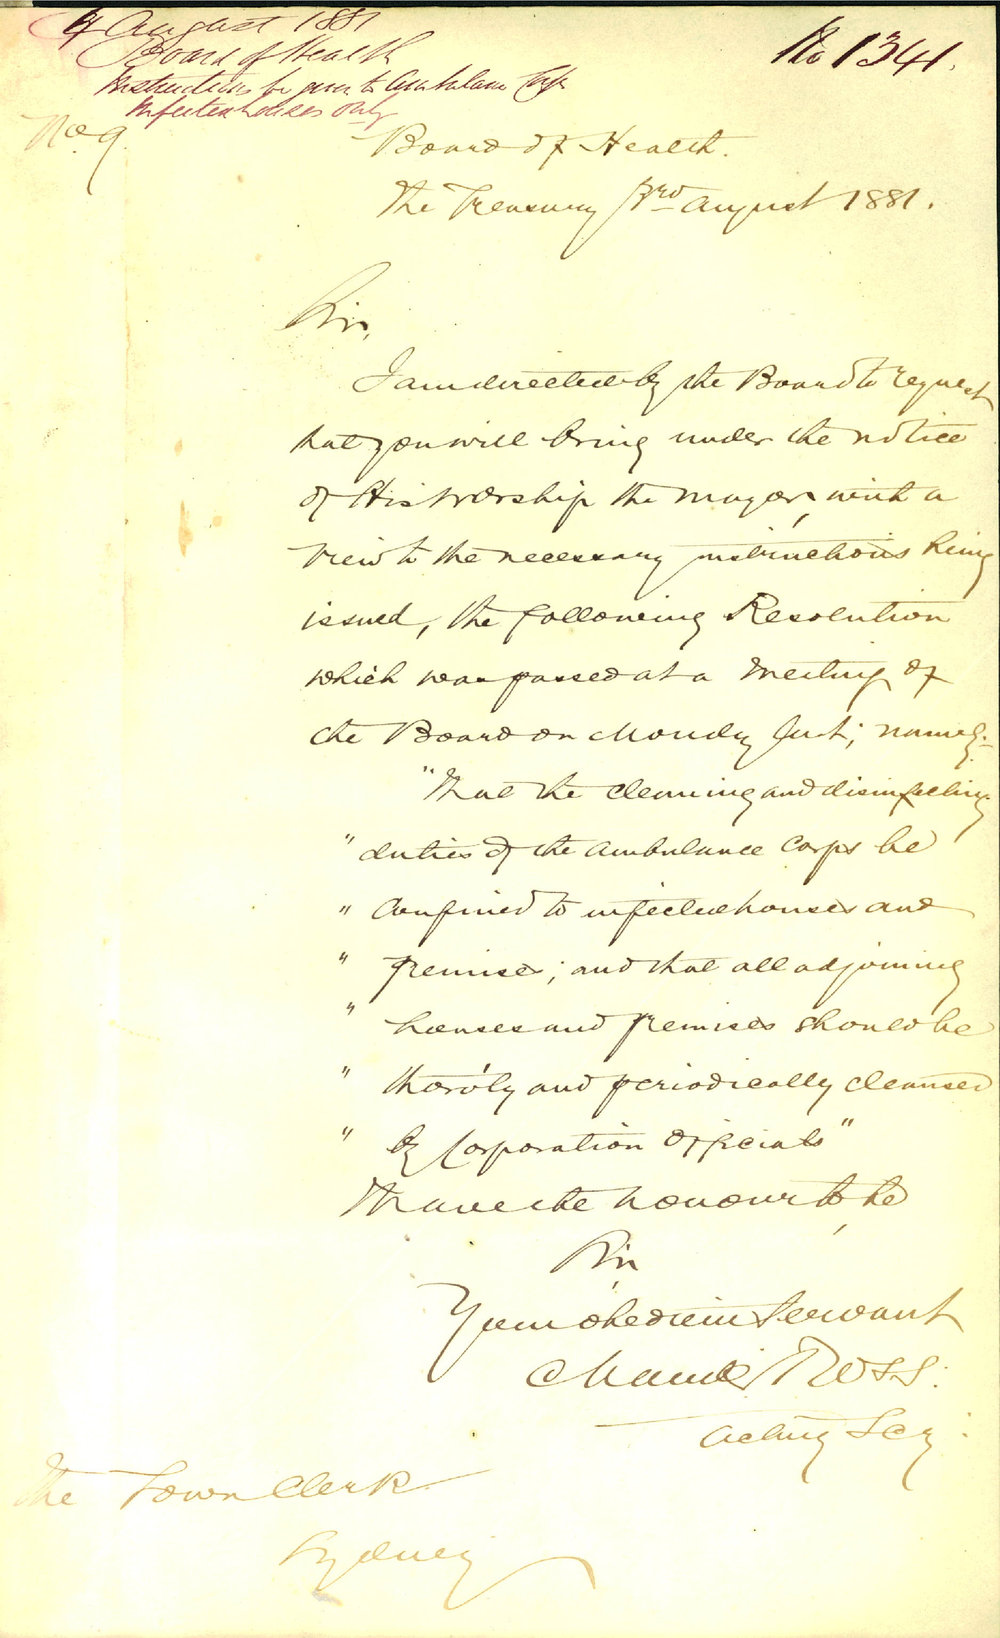 4 August 1881
Board of Health
Instructions be given to Ambulance Corps
Infected houses only
No 1341.
No. 9
Board of Health.
The Treasury 3rd August 1881.
Sir,
I am directed by the Board to request
that you will bring under the notice
of His Worship the Mayor, with a
view to the necessary instructions being
issued, the following Resolution
which was passed at a Meeting of
the Board on Monday last; namely:-
"That the cleaning and disinfecting
" duties of the Ambulance Corps be
" confined to infected houses and
" premises; and that all adjoining
" houses and premises should be
" thoro'ly and periodically cleansed
" by Corporation Officials"
I have the honour to be
Sir
Your obedient Servant
Ross
Acting Secy.
The Town Clerk
Sydney